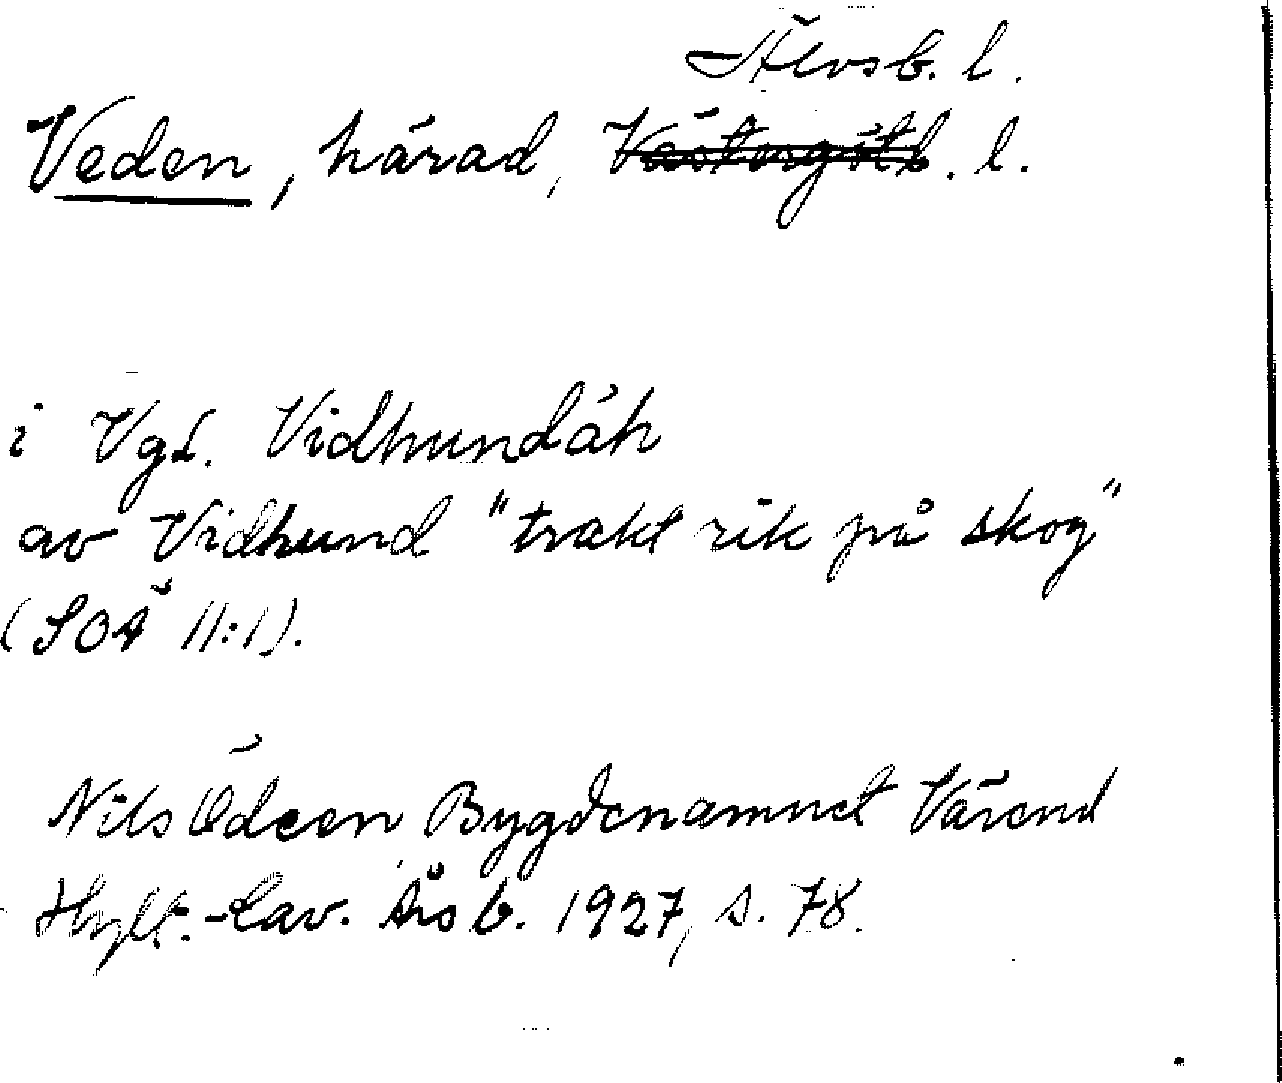 Älvsb. l.
Veden, härad, Västergötl. l.
i Vgl. Vidhundäh
av Vidhund "trakt rik på skog"
(SOÄ 11:1).
Nils Ödeen Bygdenamnet Värend
Hylt.-Cav. Årsb. 1927, s. 78.